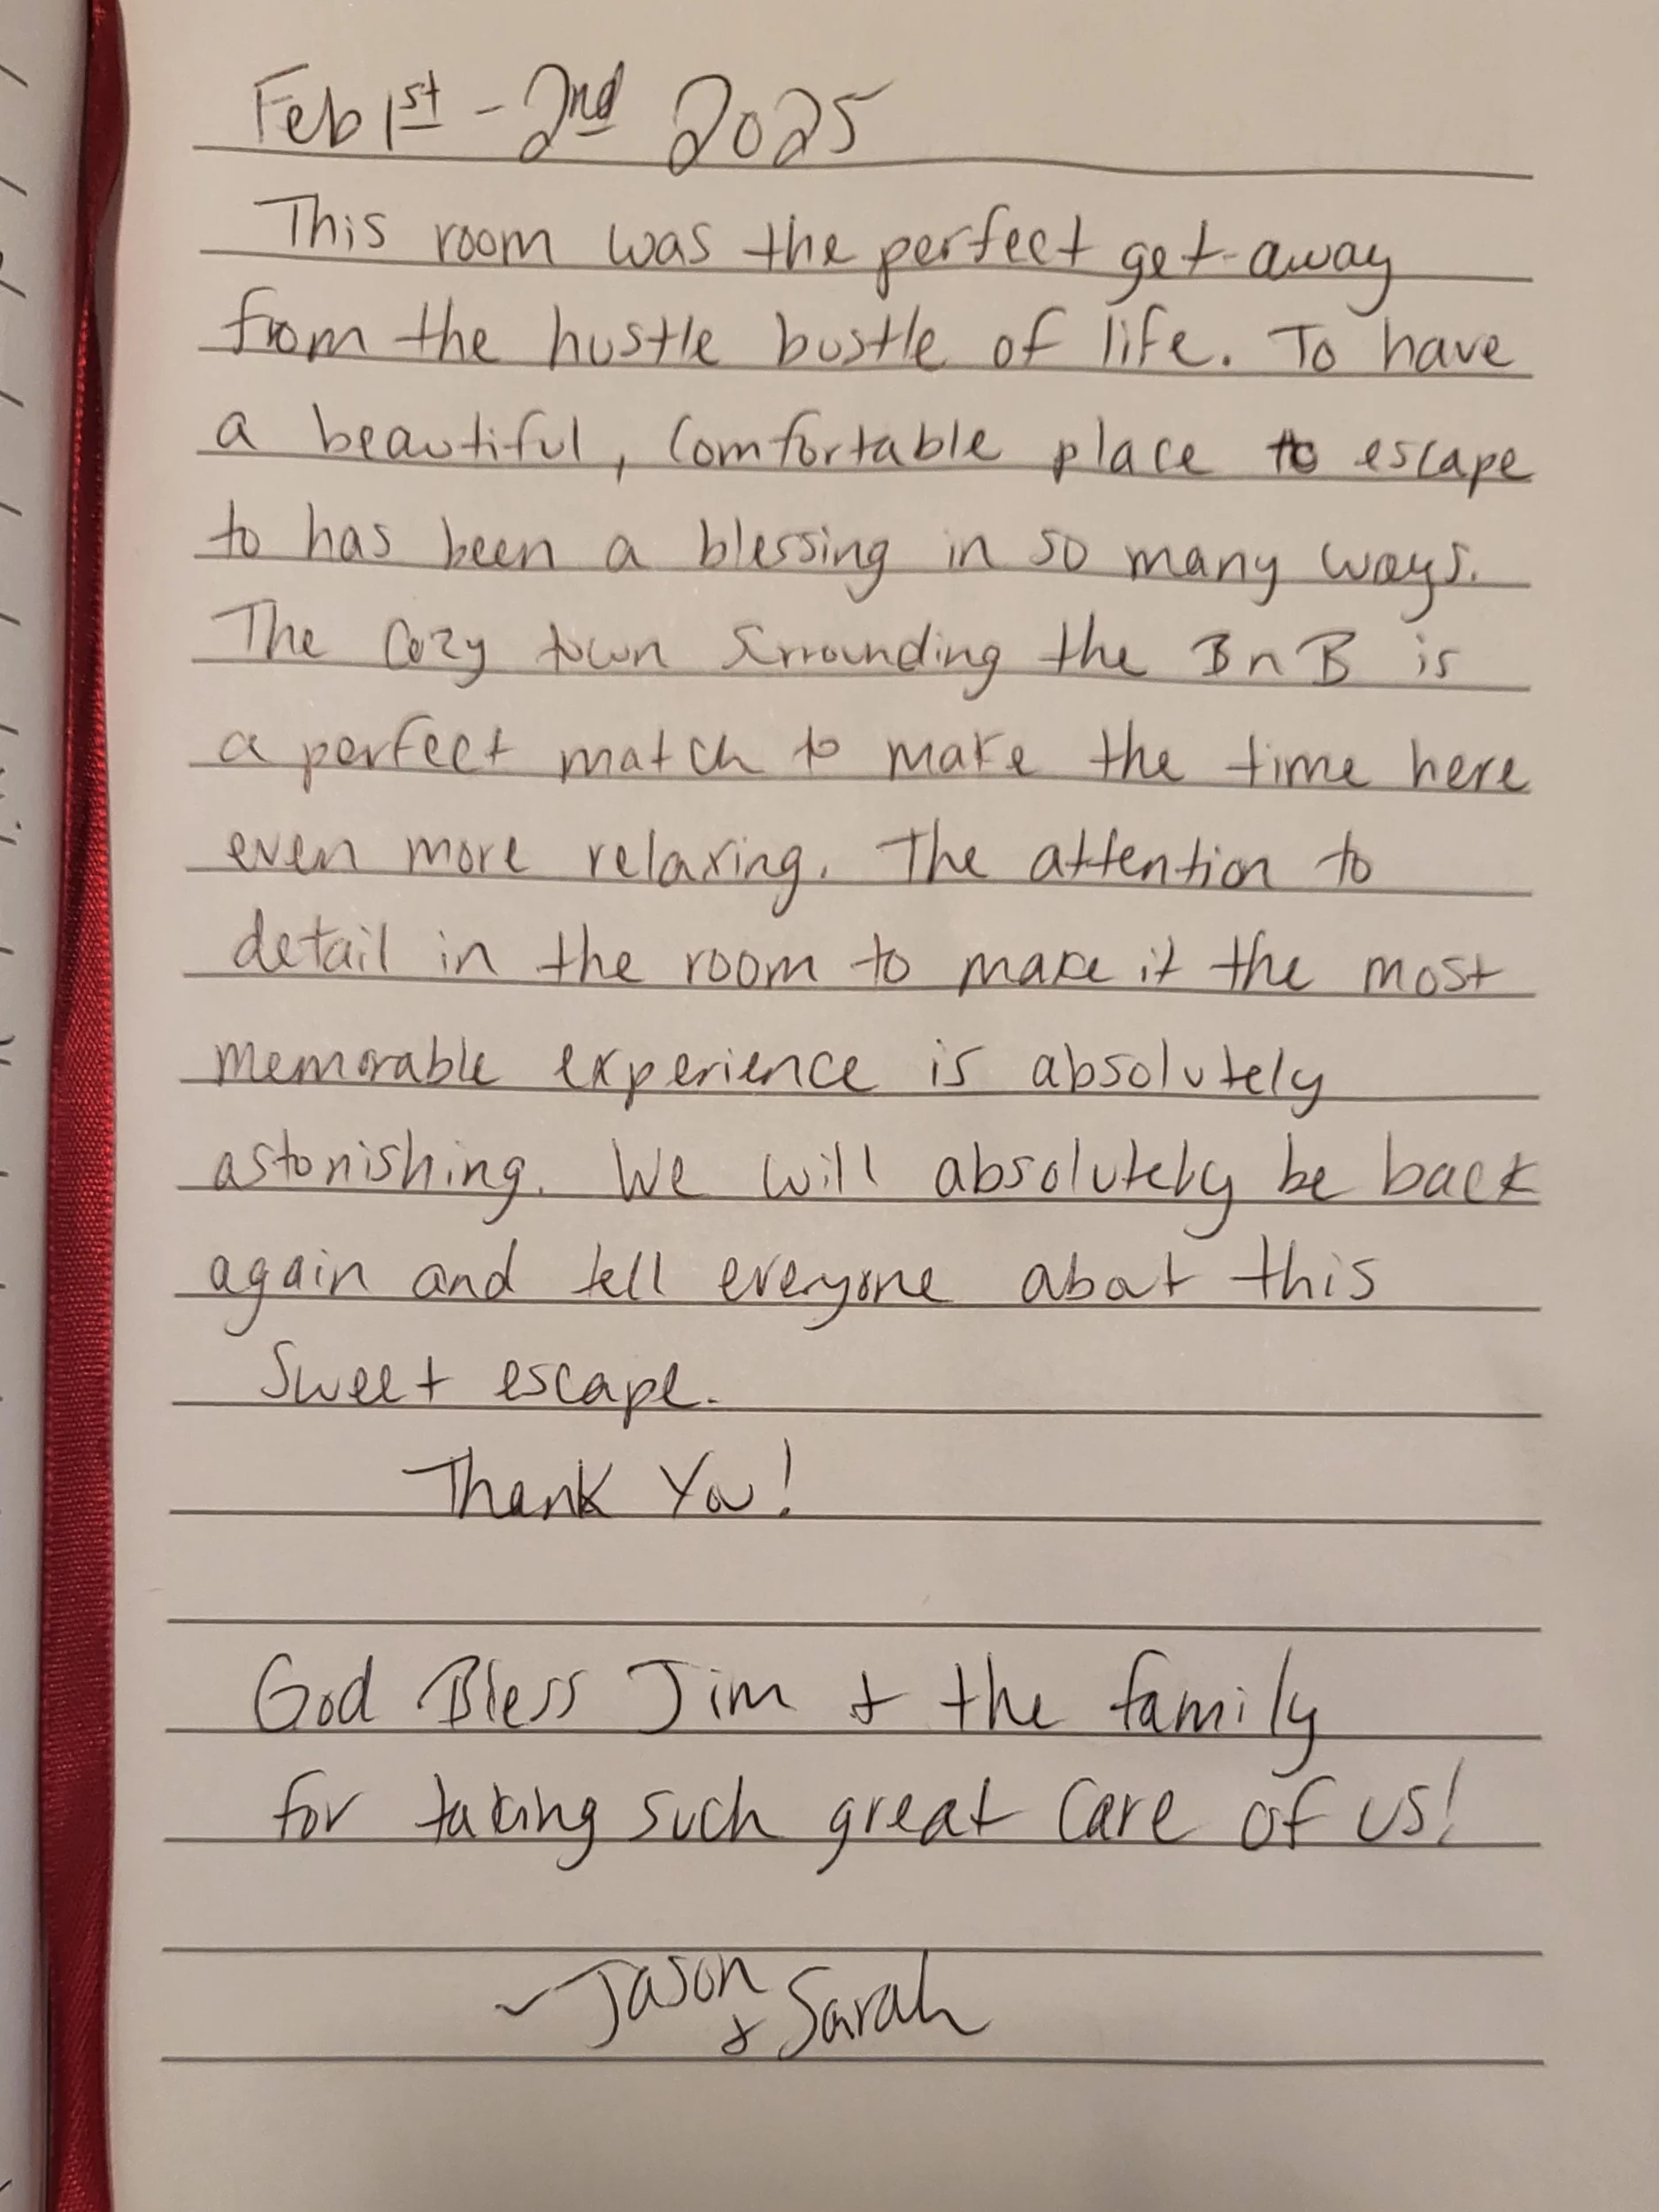 Feb 1st - 2nd 2025
This room was the perfect get-away
from the hustle bustle of life. To have
a beautiful, comfortable place to escape
to has been a blessing in so many ways.
The Cozy town surrounding the BnB is
a perfect match to make the time here
even more relaxing. The attention to
detail in the room to make it the most
memorable experience is absolutely
astonishing. We will absolutely be back
again and tell everyone about this
Sweet escape.
Thank You!
God Bless Jim & the family
for taking such great care of us!
~Jason
& Sarah